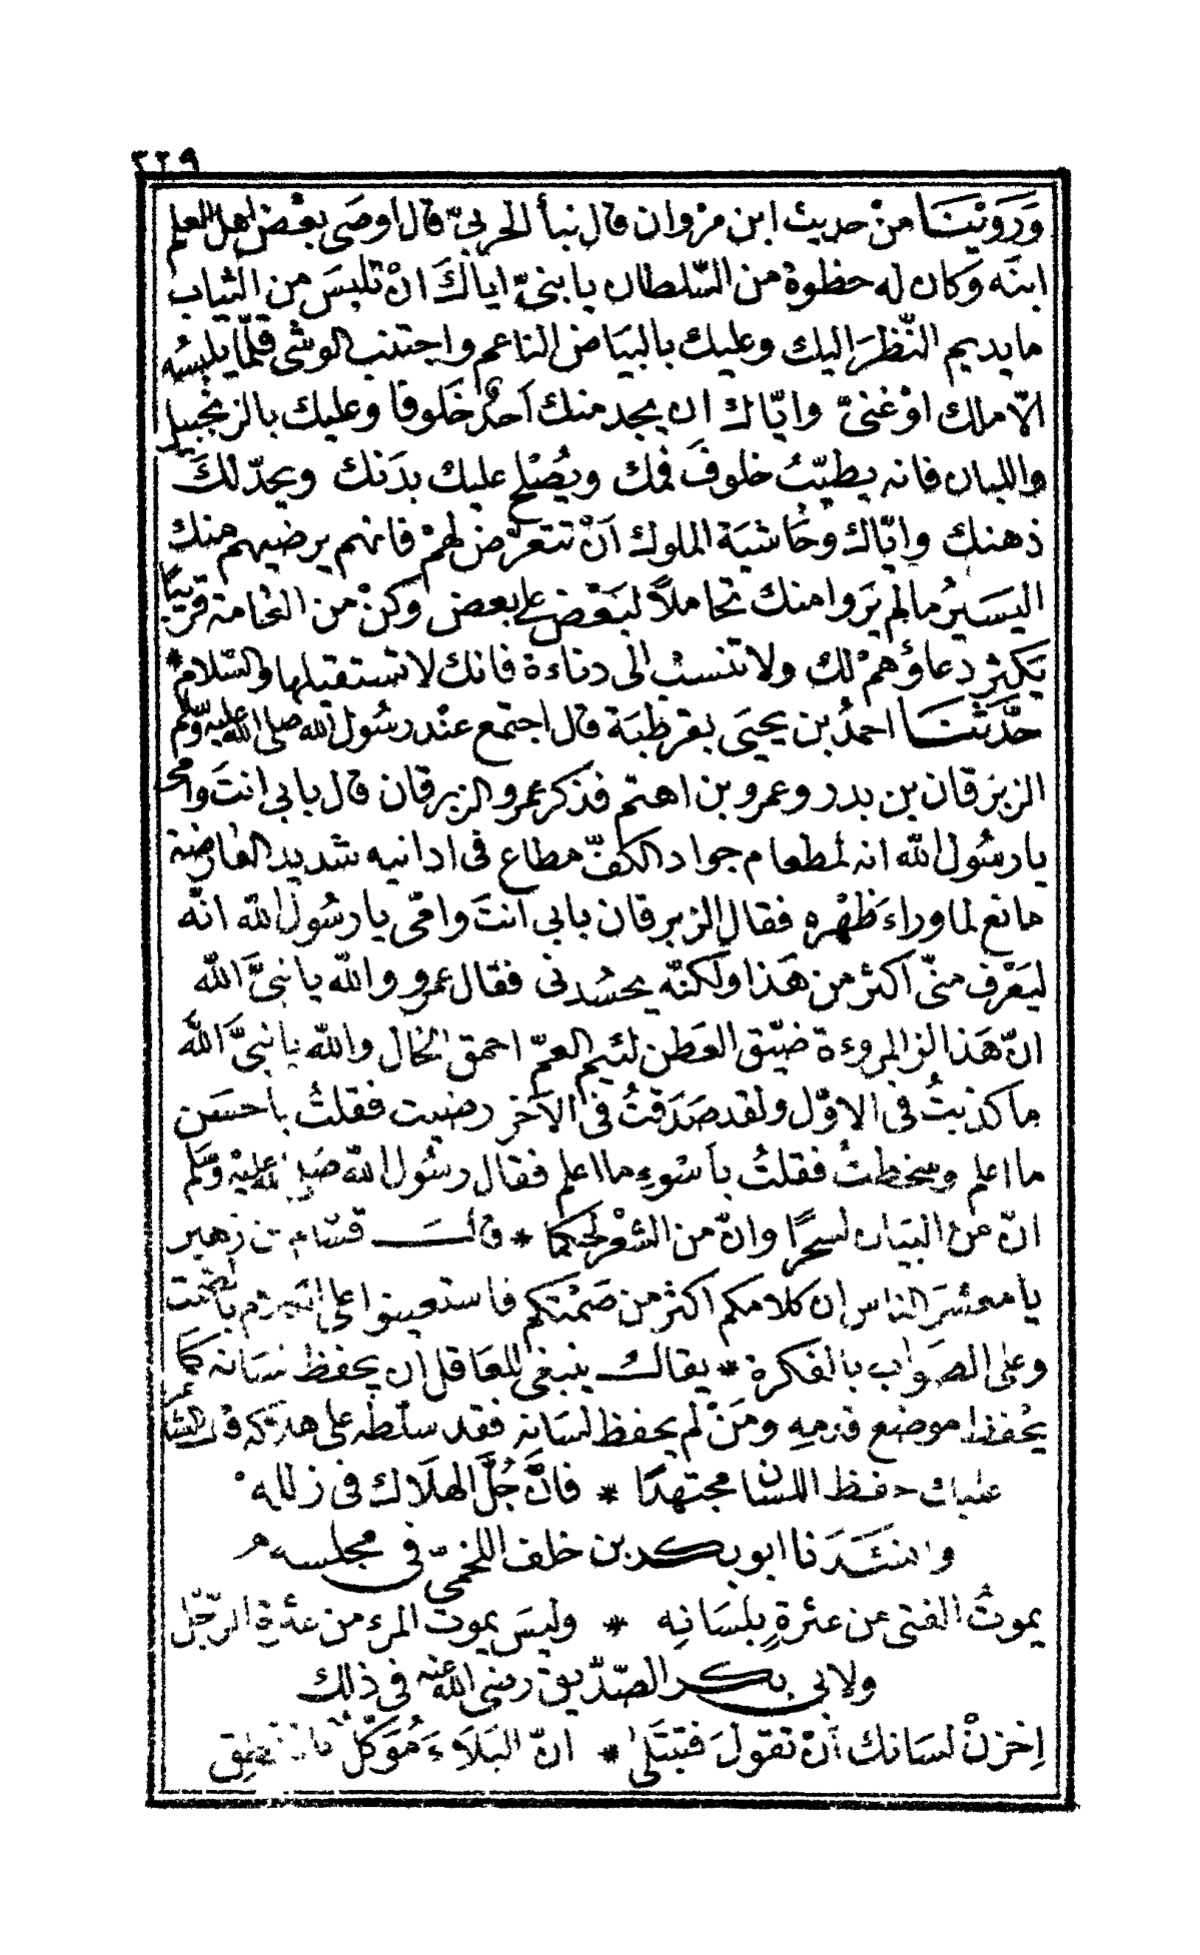 ٣٢٩
وَرَوَيْنَا منْ حديث ابن مروان قال نبأ الحربيّ قال اوصَى بعْض اهل العلم
ابنَه وكان له حظوة من السّلطان يا بنيّ اياكَ انْ تلبسَ من الثياب
ما يديم النّظرَ اليك وعليك بالبيَاض الناعم واجتنب الوشى قلّما يلبسُه
الّا ملك اوْ غنىّ واياك ان يجد منك اَحدٌ خَلوقا وعليك بالزنجبيل
واللبان فانه يطيّبُ خلوفَ فمك ويُصْلح عليك بدَنك ويحدّ لكَ
ذهنك واياك وحَاشيَة الملوك اَنْ تتعرّض لهمْ فانهم يرضيهم منك
اليسَيرُ ما لم يَروا منك تحاملاً لبَعْض على بعض وكنْ من العامة قريبًا
يَكثر دعاؤهمْ لك ولا تنسب الى دناءة فانك لا تستقبلها والسّلام *
حدَّثنَا احمدُ بن يحيَى بقرطبَة قال اجتمع عنْد رسُول الله صلى الله عليه وسلم
الزبرقان بن بدر وعمرو بن اهتم فذكر عمرو الزبرقان قال بابي انتَ وامى
يا رسُول الله انه لمطعام جواد الكفّ مطاع فى ادانيه شديد العارضة
مانع لما وراءَ ظهْره فقال الزبرقان بابي انتَ وامّى يا رسُول الله انّه
ليَعْرف منّى اكثر من هَذا ولكنّه يحسُدنى فقال عمرو والله يا نبيَّ الله
انّ هَذا لزمر المروءة ضيّق العَطن لئيم العمّ احمق الخال والله يا نبيَّ الله
ما كذبتُ فى الاوّل ولقد صَدَقتُ فى الآخر رضيت فقلتُ باَحسَن
ما اعلم وسخطتُ فقلتُ باَسْوء ما اعلم فقال رسُول الله صَلى الله عليْه وسَلم
انّ منَ البيَان لسحرًا وانّ من الشعْر لحكما * قالَ قسّام بن زهير
يا معشرَ الناس ان كلامكم اكثر من صَمْتكم فاستعينوا على الكلام بالصّمت
وعلى الصَواب بالفكرة * يقال ينبغى للعَاقل ان يحفظ لسَانه كما
يحْفظ موضع قدمهِ ومَنْ لم يحفظ لسَانه فقد سلّطه على هلاكه قال الشاعر
عليك حفظ اللسَان مجتهدًا * فانَّ جُلَّ الهلَاك فى زلله
وانشَدَنا ابو بكر بن خلف اللخمىّ فى مجلسه
يموتُ الفتى من عثرةٍ بلسَانِه * وليسَ يموت المرء من عثرة الرّجْل
ولابى بكر الصّدّيق رضى الله عنه فى ذلك
اِخزنْ لسَانك اَنْ تقولَ فتبتَلى * انّ البَلاَءَ مُوَكّلٌ بالمنطق